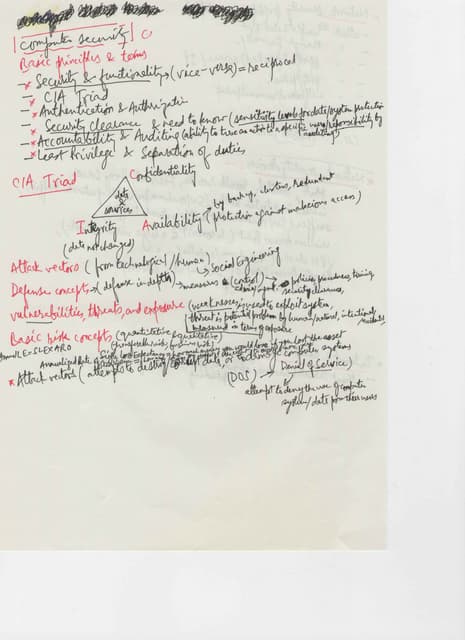 Computer security
Basic principles & terms
- * Security & functionality → (vice-versa) = reciprocal
- * CIA Triad
- * Authentication & Authorization
Security clearance & need to know (sensitivity levels for data/system protection
- * Accountability & Auditing (ability to trace an action to a specific user/responsibility by
auditing)
- * Least Privilege & Separation of duties
CIA Triad
Confidentiality
data &
services
Integrity
(data not changed)
Availability (by backup, clusters, redundant
(protection against malicious access)
Attack vectors (from technological/human)
↳ Social Engineering
Defense concepts → (defense in depth) → measures & (control) → policies, procedures, training
security awareness,
vulnerabilities, threats, and exposure (weaknesses used to exploit system,
threat is potential problem by human/natural, intentional
measured in terms of exposure
Basic risk concepts (quantitative & qualitative)
ALE = SLE x ARO
Annualized Rate of
you would lose if you lost the asset
* Attack vectors (attempts to destroy data, or
computer systems
(DOS) → Denial of Service)
attempt to deny the use of computer
system/data from their users